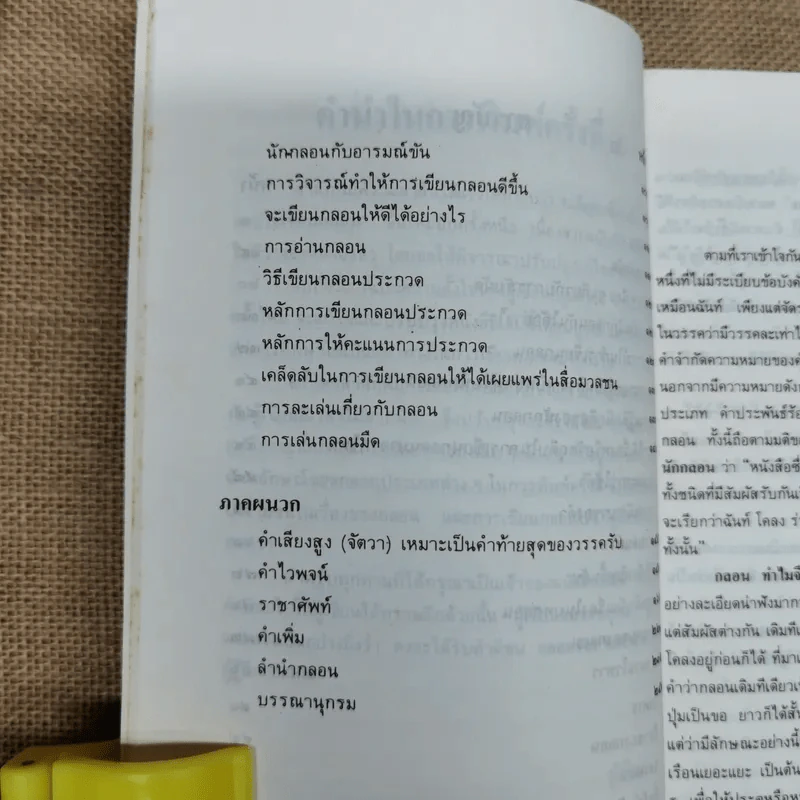 นักกลอนกับอารมณ์ขัน
การวิจารณ์ทำให้การเขียนกลอนดีขึ้น
จะเขียนกลอนให้ดีได้อย่างไร
การอ่านกลอน
วิธีเขียนกลอนประกวด
หลักการเขียนกลอนประกวด
หลักการให้คะแนนการประกวด
เคล็ดลับในการเขียนกลอนให้ได้เผยแพร่ในสื่อมวลชน
การละเล่นเกี่ยวกับกลอน
การเล่นกลอนมืด
ภาคผนวก
คำเสียงสูง (จัตวา) เหมาะเป็นคำท้ายสุดของวรรครับ
คำไวพจน์
ราชาศัพท์
คำเพิ่ม
ลำนำกลอน
บรรณานุกรม
ตามที่เราเข้าใจกัน
หนึ่งที่ไม่มีระเบียบข้อบังคั
เหมือนฉันท์ เพียงแต่จัดว
ในวรรคว่ามีวรรคละเท่าไ
คำจำกัดความหมายของค
นอกจากมีความหมายดังก
ประเภท คำประพันธ์ร้อ
กลอน ทั้งนี้ถือตามมติข
นักกลอน ว่า "หนังสือซึ่
ทั้งชนิดที่มีสัมผัสรับกันเ
จะเรียกว่าฉันท์ โคลง ร่
ทั้งนั้น"
กลอน ทำไมจึ
อย่างละเอียดน่าฟังมาก
แต่สัมผัสต่างกัน เดิมทีเ
โคลงอยู่ก่อนก็ได้ ที่มาเ
คำว่ากลอนเดิมทีเดียวเ
ปุ่มเป็นขอ ยาวก็ได้สั้
แต่ว่ามีลักษณะอย่างนี้
เรือนเยอะแยะ เป็นต้น